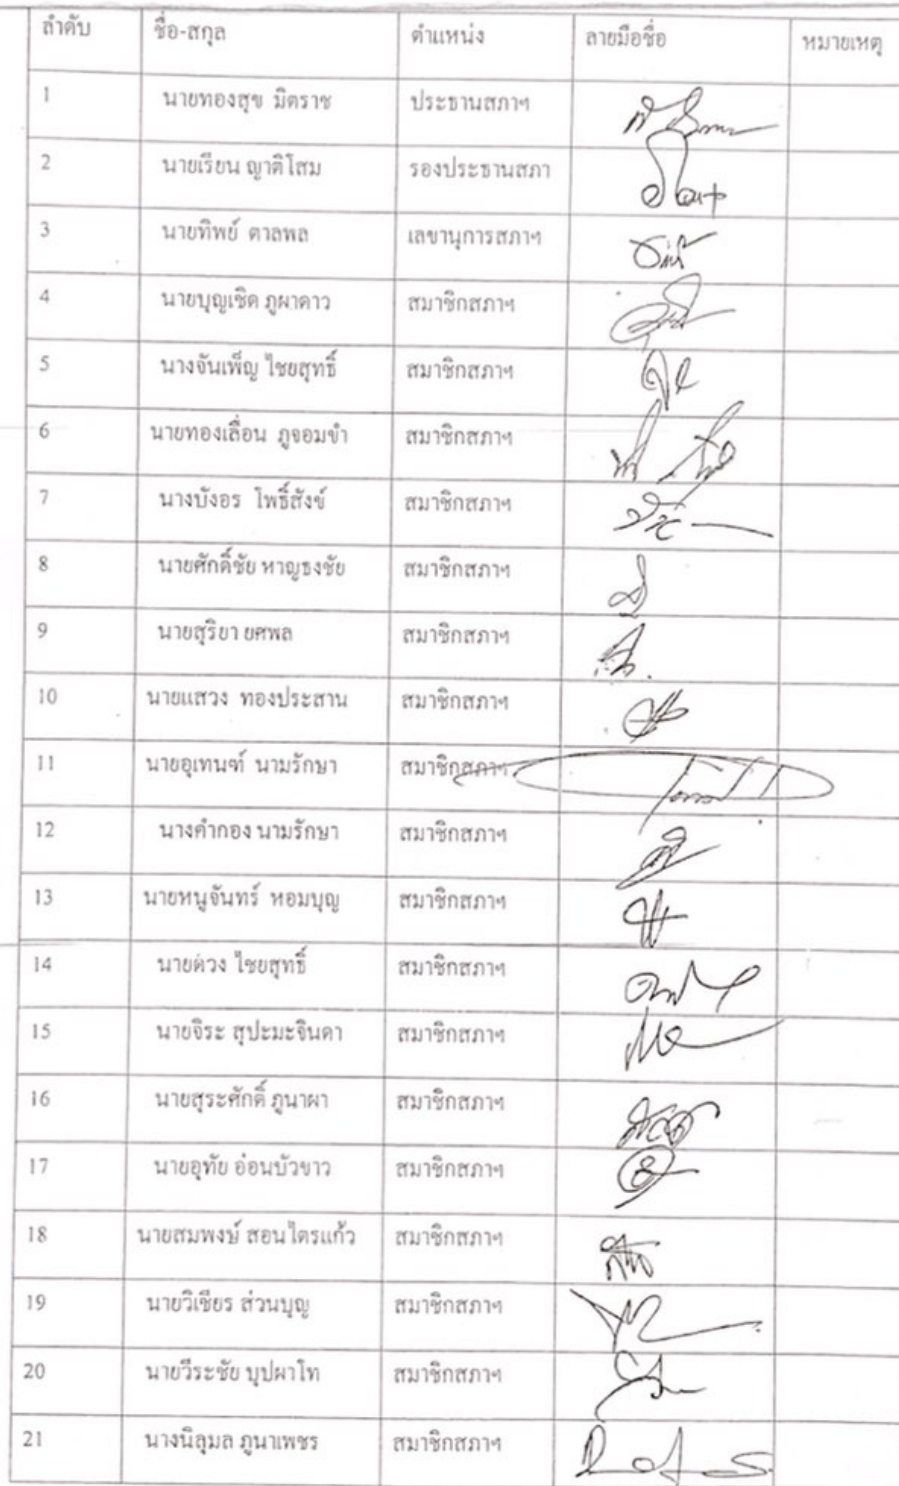 ลำดับ ชื่อ-สกุล ตำแหน่ง ลายมือชื่อ หมายเหตุ
1 นายทองสุข มิตราช ประธานสภาฯ
2 นายเรียน ญาติโสม รองประธานสภา
3 นายทิพย์ ตาลพล เลขานุการสภาฯ
4 นายบุญเชิด ภูผาดาว สมาชิกสภาฯ
5 นางจันเพ็ญ ไชยสุทธิ์ สมาชิกสภาฯ
6 นายทองเลื่อน ภูจอมขำ สมาชิกสภาฯ
7 นางบังอร โพธิ์สังข์ สมาชิกสภาฯ
8 นายศักดิ์ชัย หาญธงชัย สมาชิกสภาฯ
9 นายสุริยา ยศพล สมาชิกสภาฯ
10 นายแสวง ทองประสาน สมาชิกสภาฯ
11 นายอุเทนฑ์ นามรักษา สมาชิกสภาฯ
12 นางคำกอง นามรักษา สมาชิกสภาฯ
13 นายหนูจันทร์ หอมบุญ สมาชิกสภาฯ
14 นายด่วง ไชยสุทธิ์ สมาชิกสภาฯ
15 นายจิระ สุปะมะจินดา สมาชิกสภาฯ
16 นายสุระศักดิ์ ภูนาผา สมาชิกสภาฯ
17 นายอุทัย อ่อนบัวขาว สมาชิกสภาฯ
18 นายสมพงษ์ สอนไตรแก้ว สมาชิกสภาฯ
19 นายวิเชียร ส่วนบุญ สมาชิกสภาฯ
20 นายวีระชัย บุปผาโท สมาชิกสภาฯ
21 นางนิลุมล ภูนาเพชร สมาชิกสภาฯ